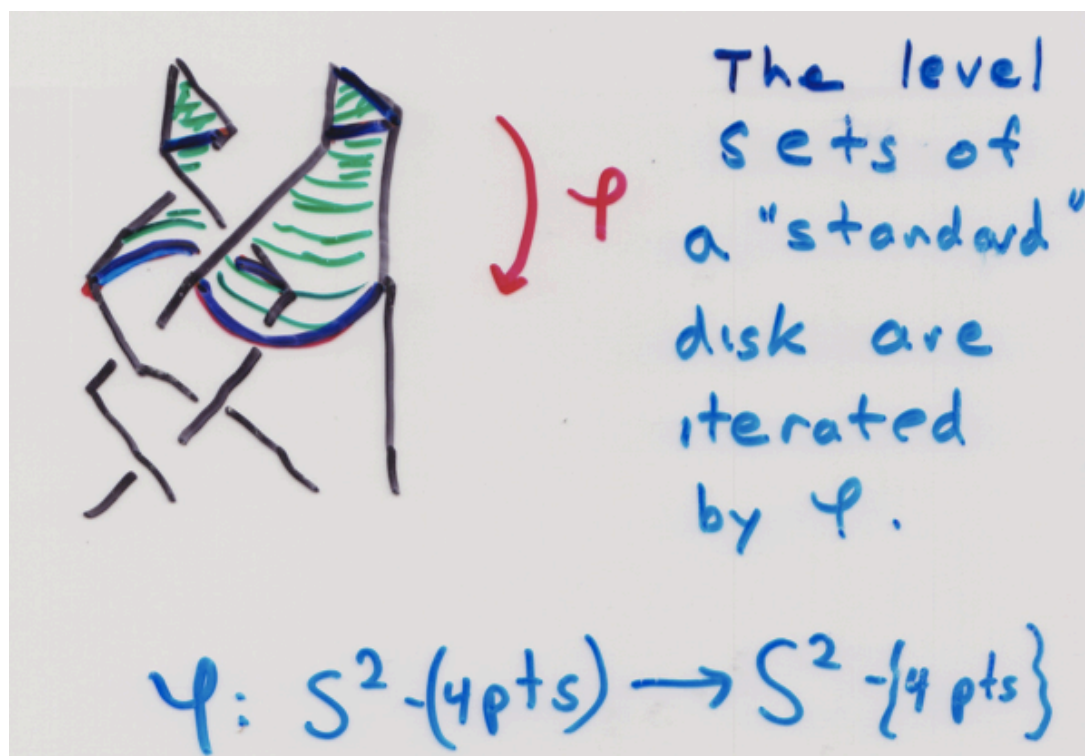 φ
The level
sets of
a "standard"
disk are
iterated
by φ.
φ: S² -(4pts) → S² -{4 pts}